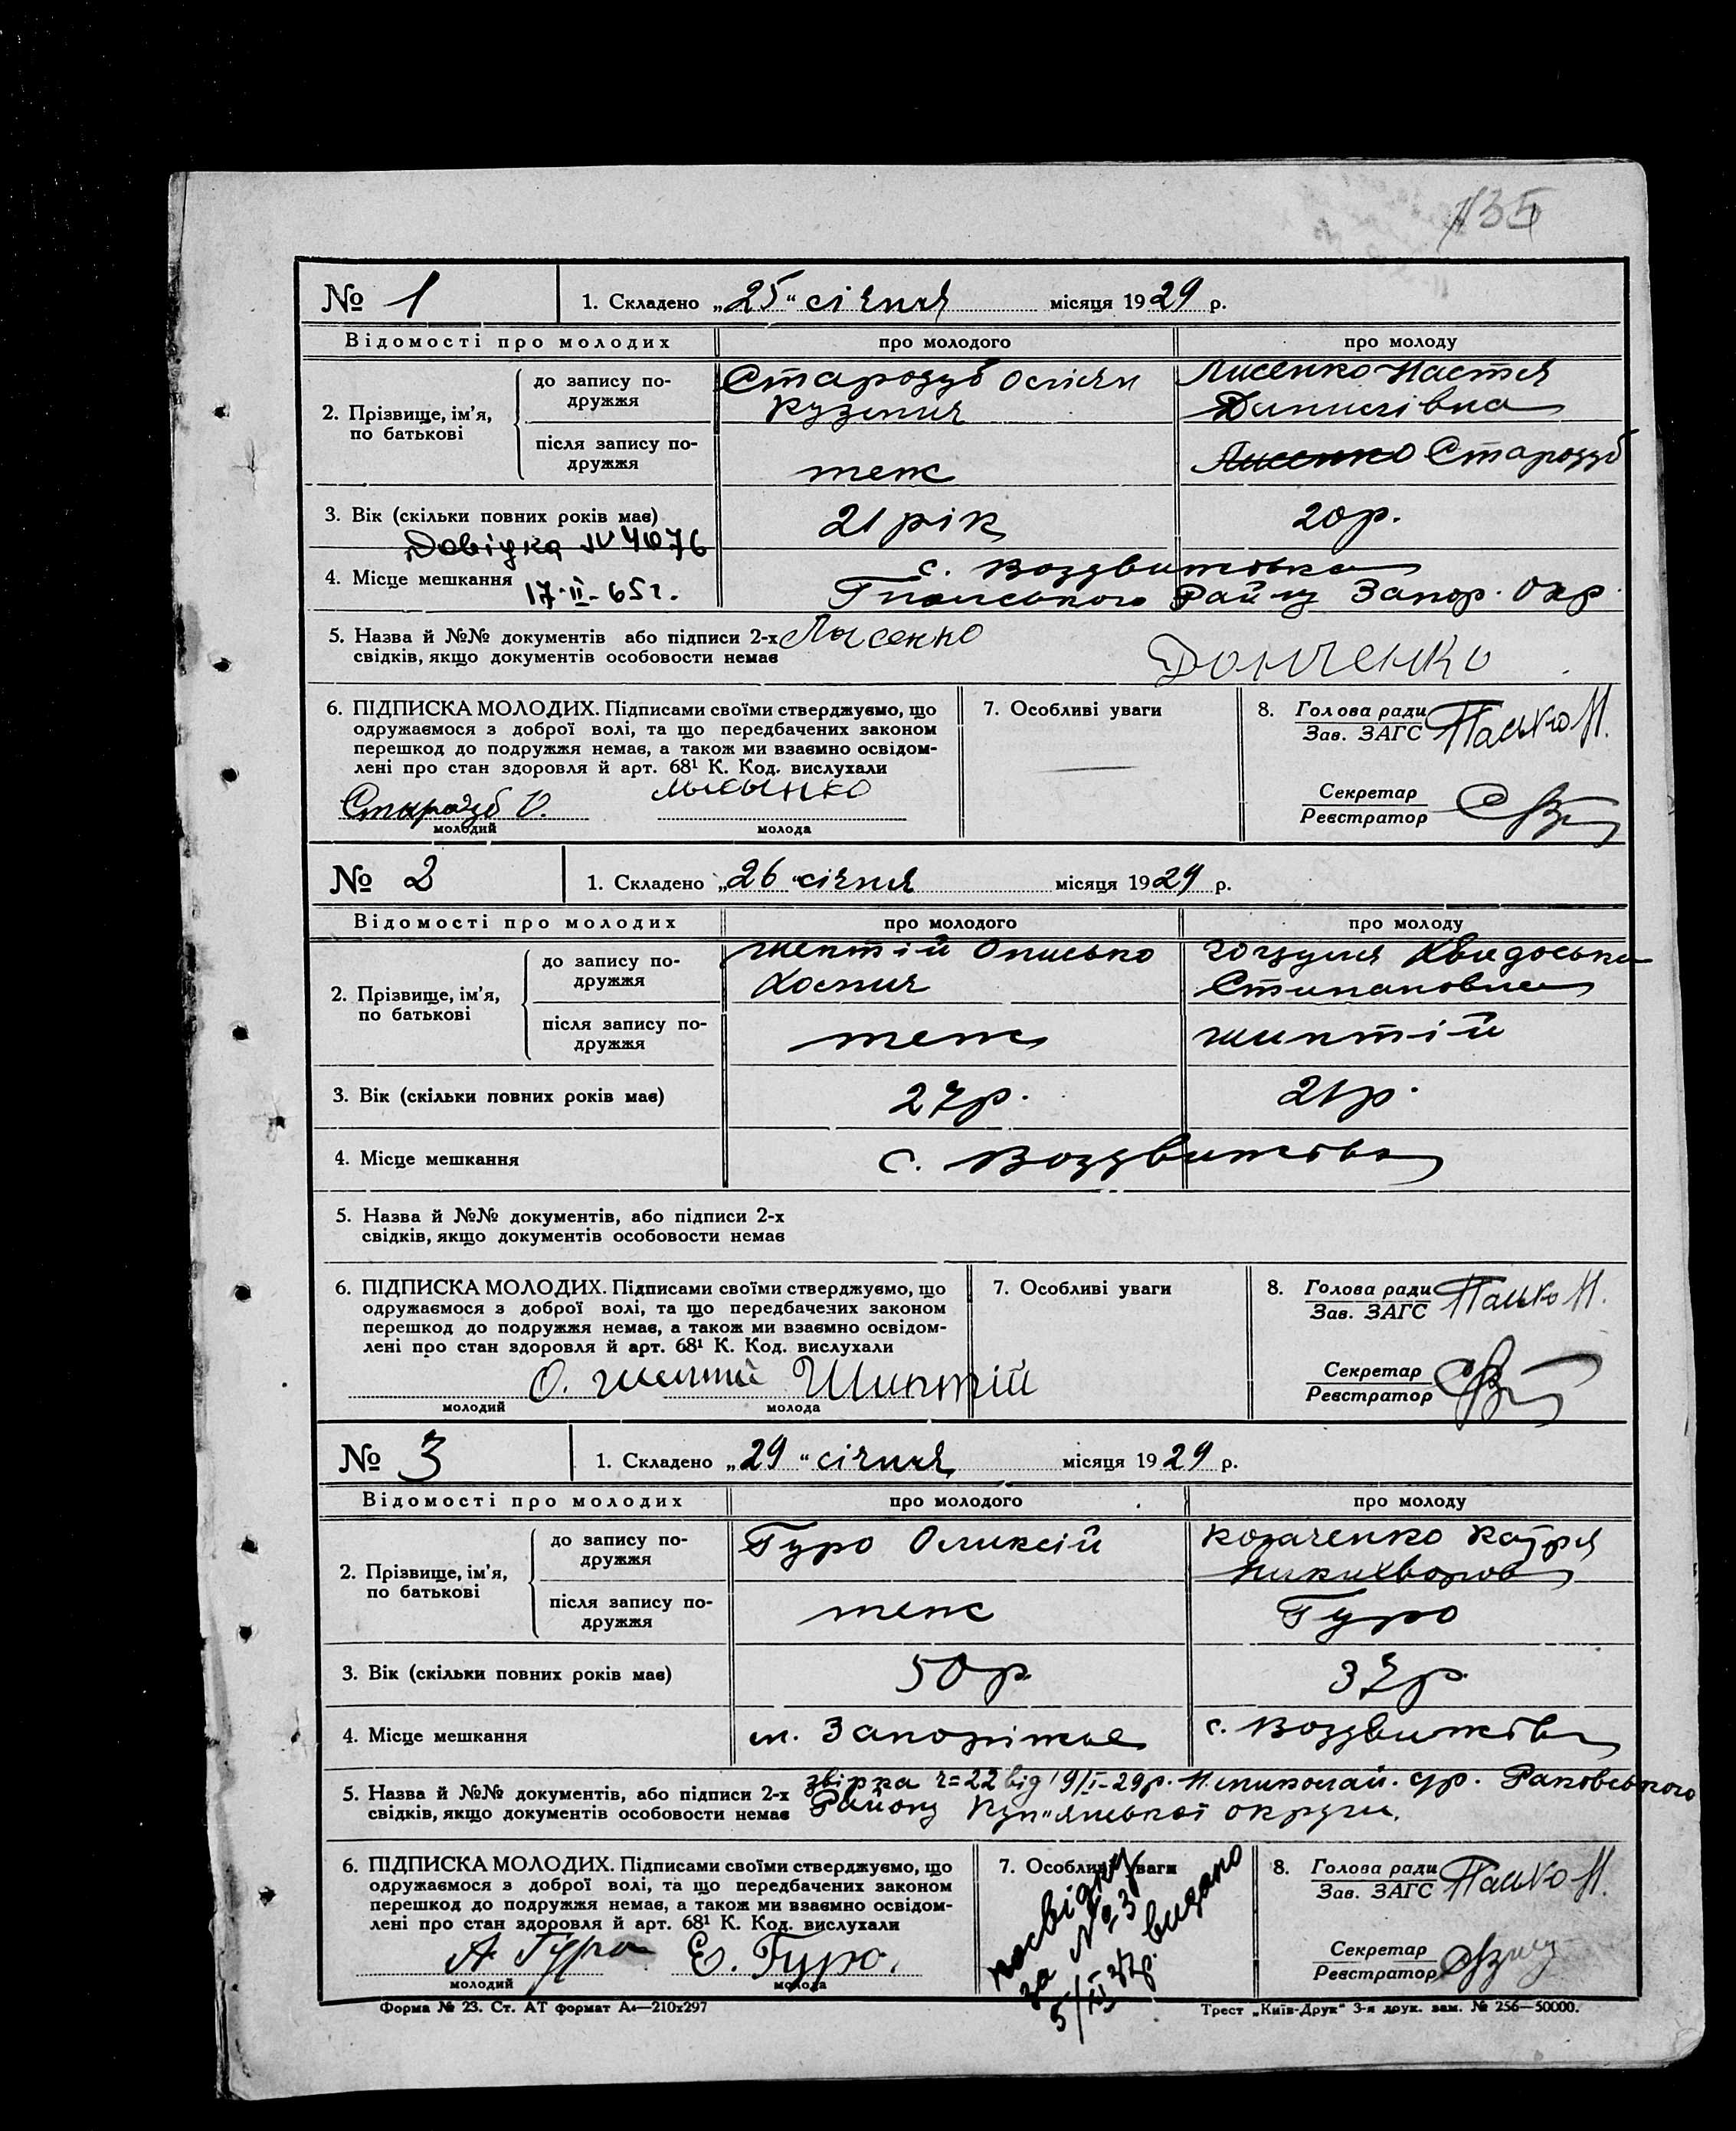 135
№ 1
1. Складено „25“ січня місяця 1929 р.
Відомості про молодих
про молодого
про молоду
2. Прізвище, ім’я, по батькові
до запису по-
дружжя
Стародуб
Лисенко Настя
після запису по-
дружжя
теж
Лисенко Стародуб
3. Вік (скільки повних років має)
21 рік
20 р.
Довідка № 4076
17-II-65 г.
4. Місце мешкання
с. Воздвижовка
Району Запор. Окр.
5. Назва й №№ документів або підписи 2-х
свідків, якщо документів особовости немає
Лысенко
Донченко
6. ПІДПИСКА МОЛОДИХ. Підписами своїми стверджуємо, що
одружаємося з доброї волі, та що передбачених законом
перешкод до подружжя немає, а також ми взаємно освідом-
лені про стан здоровля й арт. 68¹ К. Код. вислухали
Стародуб О.
молодий
молода
7. Особливі уваги
8. Голова ради
Зав. ЗАГС
Секретар
Реєстратор
№ 2
1. Складено „26“ січня місяця 1929 р.
Відомості про молодих
про молодого
про молоду
2. Прізвище, ім’я,
по батькові
до запису по-
дружжя
після запису по-
дружжя
теж
3. Вік (скільки повних років має)
27 р.
21 р.
4. Місце мешкання
с. Воздвижівка
5. Назва й №№ документів, або підписи 2-х
свідків, якщо документів особовости немає
6. ПІДПИСКА МОЛОДИХ. Підписами своїми стверджуємо, що
одружаємося з доброї волі, та що передбачених законом
перешкод до подружжя немає, а також ми взаємно освідом-
лені про стан здоровля й арт. 68¹ К. Код. вислухали
молодий
молода
7. Особливі уваги
8. Голова ради
Зав. ЗАГС
Секретар
Реєстратор
№ 3
1. Складено „29“ січня місяця 1929 р.
Відомості про молодих
про молодого
про молоду
2. Прізвище, ім’я,
по батькові
до запису по-
дружжя
Гуро Оликсій
Козаченко Катря
після запису по-
дружжя
теж
Гуро
3. Вік (скільки повних років має)
50 р.
37 р.
4. Місце мешкання
м. Запоріжжя
с. Воздвижівка
5. Назва й №№ документів, або підписи 2-х
свідків, якщо документів особовости немає
звірка ч=22 від 19/I-29р. Раковського
Району Куп"янської округи.
6. ПІДПИСКА МОЛОДИХ. Підписами своїми стверджуємо, що
одружаємося з доброї волі, та що передбачених законом
перешкод до подружжя немає, а також ми взаємно освідом-
лені про стан здоровля й арт. 68¹ К. Код. вислухали
А Гуро
молодий
Е. Гуро.
молода
7. Особливі уваги
посвідку
за №
видано
8. Голова ради
Зав. ЗАГС
Секретар
Реєстратор
Форма № 23. Ст. АТ формат А₄—210х297
Трест „Київ-Друк“ 3-я друк. зам. № 256—50000.